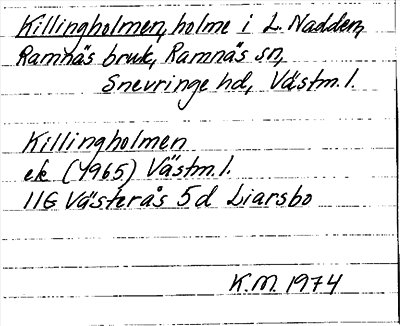 Killingholmen, holme i L. Nadden,
Ramnäs bruk, Ramnäs sn,
Snevringe hd, Västm. l.
Killingholmen
ek (1965) Västm. l.
11G Västerås 5d Liarsbo
K.M. 1974